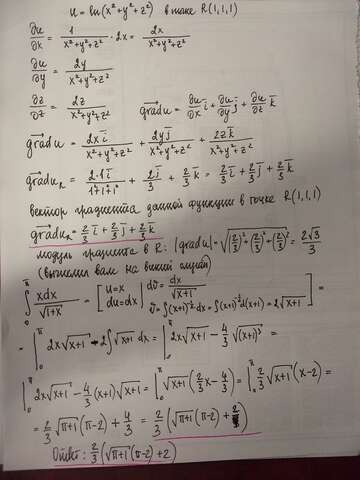 u = ln(x²+y²+z²) в точке R(1,1,1)
∂u/∂x = 1/(x²+y²+z²) · 2x = 2x/(x²+y²+z²)
∂u/∂y = 2y/(x²+y²+z²)
∂z/∂z = 2z/(x²+y²+z²) grad u = ∂u/∂x i + ∂u/∂y j + ∂u/∂z k
grad u = 2x i/(x²+y²+z²) + 2y j/(x²+y²+z²) + 2z k/(x²+y²+z²)
grad u_R = 2·1 i/(1²+1²+1²) + 2/3 j + 2/3 k = 2/3 i + 2/3 j + 2/3 k
вектор градиента данной функции в точке R(1,1,1)
grad u_R = 2/3 i + 2/3 j + 2/3 k
модуль градиента в R: |grad u| = √((2/3)²+(2/3)²+(2/3)²) = 2√3/3
∫₀^π xdx/√(1+x) = [u=x du=dx | dv = dx/√(x+1) v = ∫(x+1)^(-1/2) dx = ∫(x+1)^(-1/2) d(x+1) = 2√(x+1)] =
= |₀^π 2x√(x+1) - 2∫√(x+1) dx = |₀^π 2x√(x+1) - 4/3 √(x+1)³ =
|₀^π 2x√(x+1) - 4/3 (x+1)√(x+1) = |₀^π √(x+1) (2/3 x - 4/3) = |₀^π 2/3 √(x+1) (x-2) =
= 2/3 √(π+1) (π-2) + 4/3 = 2/3 (√(π+1) (π-2) + 2)
Ответ: 2/3 (√(π+1) (π-2) + 2)